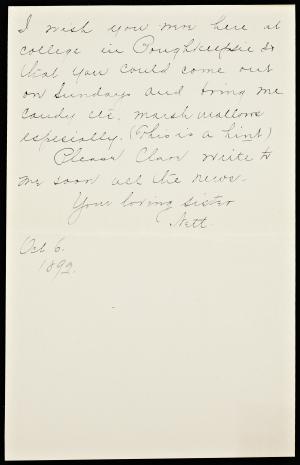 I wish you were here at
college in Poughkeepsie so
that you could come out
on Sundays and bring me
candy etc. marsh mallows
especially. (This is a hint)
Please Clare write to
me soon all the news.
Your loving sister
Nett.
Oct 6.
1892.